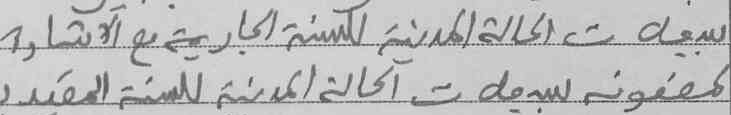 لسجلات الحالة المدنية للسنة الجارية مع الاشارة
لسجلات الحالة المدنية للسنة المقيد